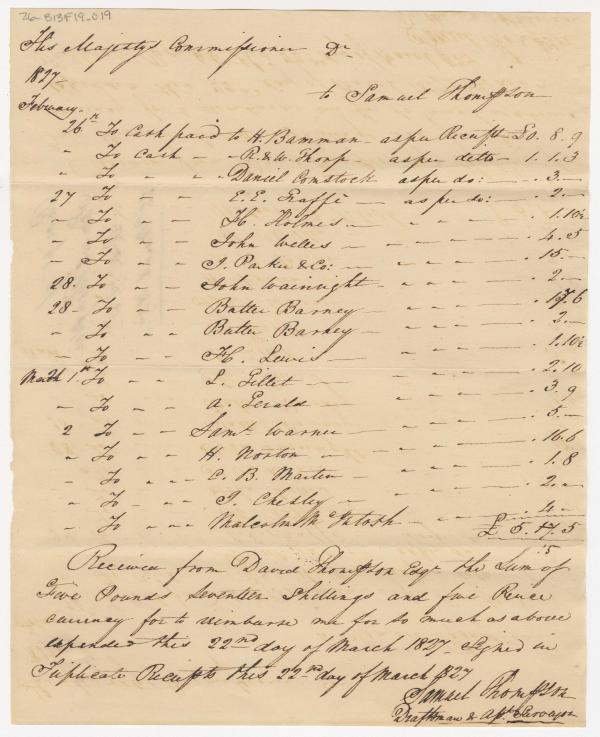 26-B13F19-019
His Majestys Commissioner Dr
1827 to Samuel Thompson
February.
26th To Cash paid to H. Bamman - as per Receipt £0. 8. 9
" To Cash - - R. & W. Thorp - as per ditto - 1. 1. 3
" To " " Daniel Comstock as per do: - . 3. -
27 To " " E. E. Graffe - as per do: - . 2. -
" To - - H. Holmes - " " - . 1. 10½
" To - - John Welles - " " " - . 4. 5
" To - - J. Parker & Co: - " " " - . 15. -
28. To - - John Wainright - " " " - . 2. -
28. To - - Butler Barney - " " " - . 17. 6
" To - - Butler Barney - " " " - . 2. -
" To - - H. Lewis - " " " - . 1. 10½
March 1st To - - L. Gillet - " " " - . 2. 10
" To - - A. Gerald - " " " - . 3. 9
2 To " - Saml. Warner - " " " - . 5. -
" To - - H. Norton - " " " - . 16. 6
" To - - C. B. Martin - " " " - . 1. 8
" To - - J. Chesley - " " " - . 2. -
" To " " " Malcolm McIntosh - " " " - . 4. -
£ 5. 17. 5
.5
Received from David Thompson Esqr the Sum of
Five Pounds Seventeen Shillings and five Pence
currency for to reimburse me for so much as above
expended this 22nd day of March 1827. Signed in
Triplicate Receipts this 22nd day of March 1827
Samuel Thompson
Draftman & Asst. Surveyor